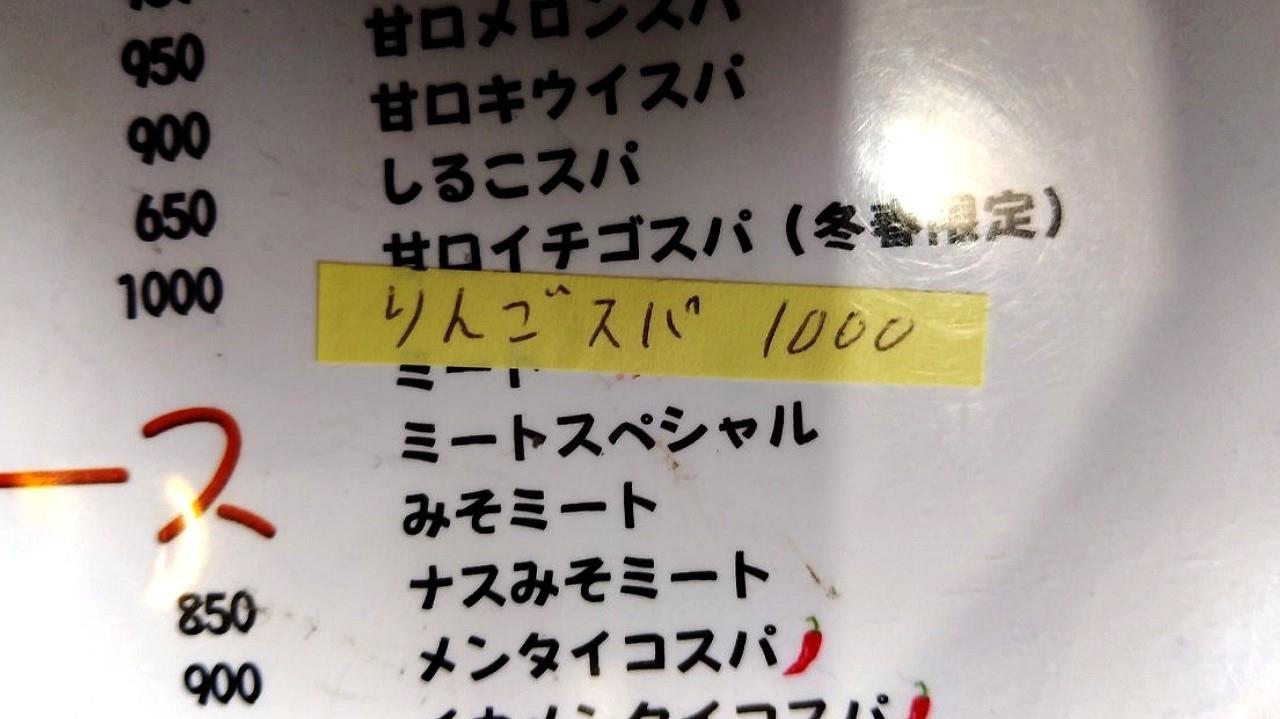 950
甘口メロンスパ
900
甘口キウイスパ
650
しるこスパ
1000
甘口イチゴスパ(冬春限定)
りんごスパ 1000
ミート
ミートスペシャル
ース
みそミート
850
ナスみそミート
900
メンタイコスパ
メンタイコスパ